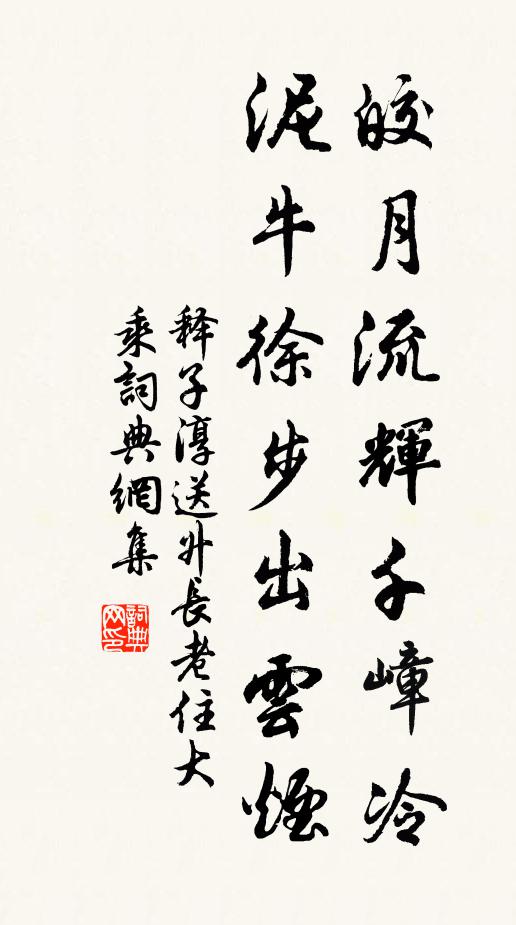 皎月流輝千嶂冷
泥牛徐步出雲煙
释子淳送升長老住大
乘詞典網集
詞典
网印